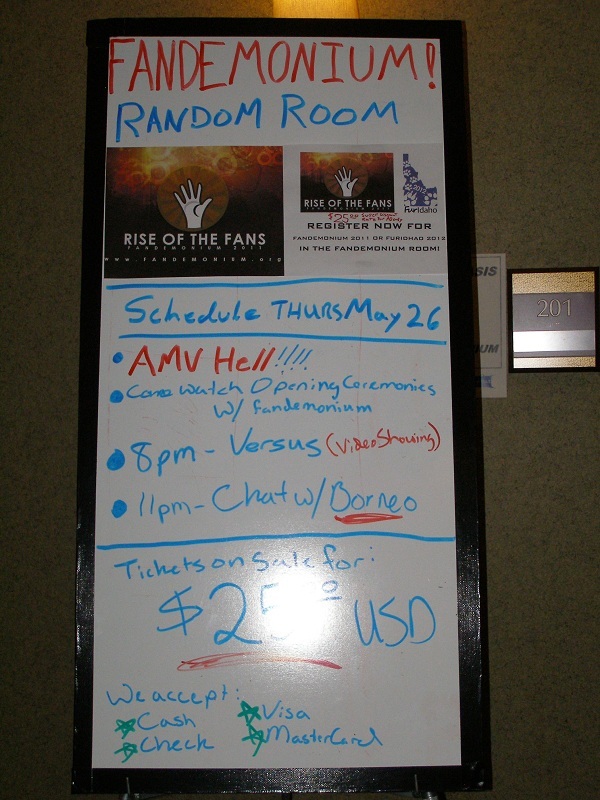 FANDEMONIUM!
RANDOM ROOM
RISE OF THE FANS
FANDEMONIUM 2011
www.FANDEMONIUM.org
RISE OF THE FANS
FANDEMONIUM 2011
2012
FurIdaho
$25
REGISTER NOW FOR
FANDEMONIUM 2011 OR FURIDHAO 2012
IN THE FANDEMONIUM ROOM!
Schedule THURS May 26
• AMV Hell!!!!
• Come Watch Opening Ceremonies
w/ Fandemonium
• 8pm - Versus (Video Showing)
• 11pm - Chat w/ Borneo
Tickets on Sale for:
$25.00 USD
We accept:
Cash
Visa
Check
MasterCard
SIS
UM
201